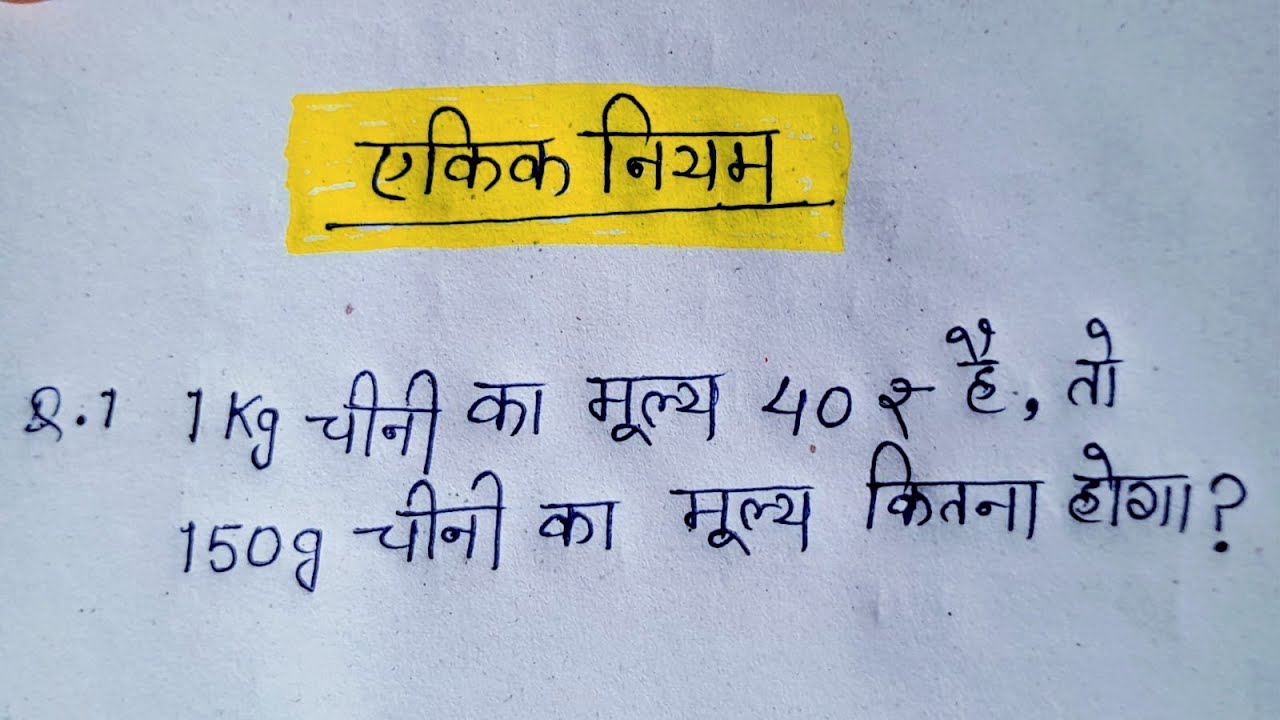 एकिक नियम
Q.1 1Kg चीनी का मूल्य 40 ₹ है, तो
150g चीनी का मूल्य कितना होगा?